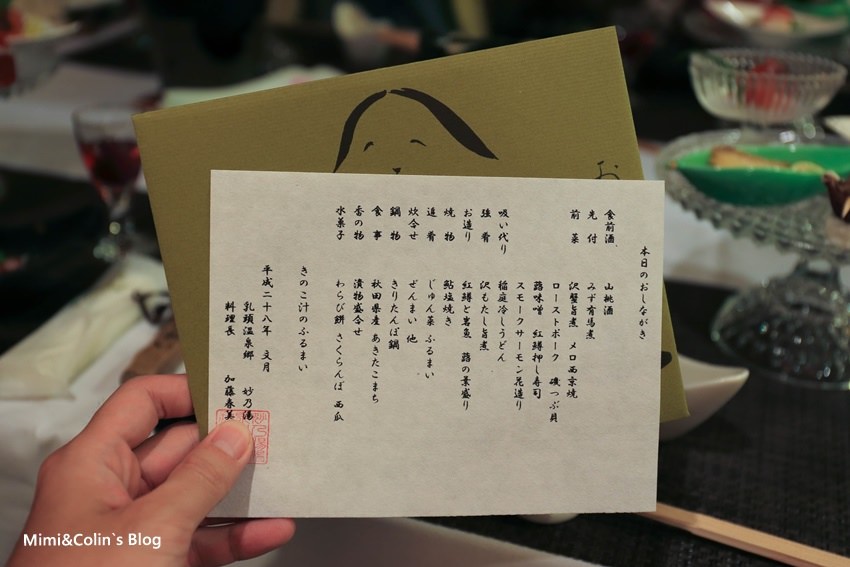 本日のおしながき
食前酒 山桃酒
先付 みず有馬煮
前菜 沢蟹旨煮 メロ西京焼
ローストポーク 磯つぶ貝
蕗味噌 紅鱒押し寿司
スモークサーモン花造り
吸い代り 稲庭冷しうどん
強肴 沢もたし旨煮
お造り 紅鱒と岩魚 蕗の葉盛り
焼物 鮎塩焼き
進肴 じゅん菜ふるまい
炊合せ ぜんまい 他
鍋物 きりたんぽ鍋
食事 秋田県産あきたこまち
香の物 漬物盛合せ
水菓子 わらび餅 さくらんぼ 西瓜
きのこ汁のふるまい
平成二十八年 文月
乳頭温泉郷 妙乃湯
料理長 加藤春美
お
Mimi&Colin`s Blog